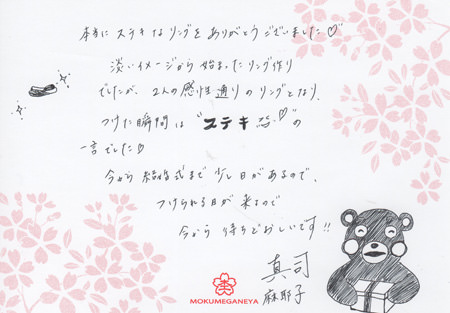 本当に ステキなリングを ありがとうございました♡
淡いイメージから始まったリング作り
でしたが、2人の感性通りの リングとなり、
つけた瞬間は "ステキ♡"の
一言でした♡
今から 結婚式まで 少し日があるので、
つけられる日が 来るので
今から 待ちどおしいです!!
真司
麻耶子
MOKUMEGANEYA